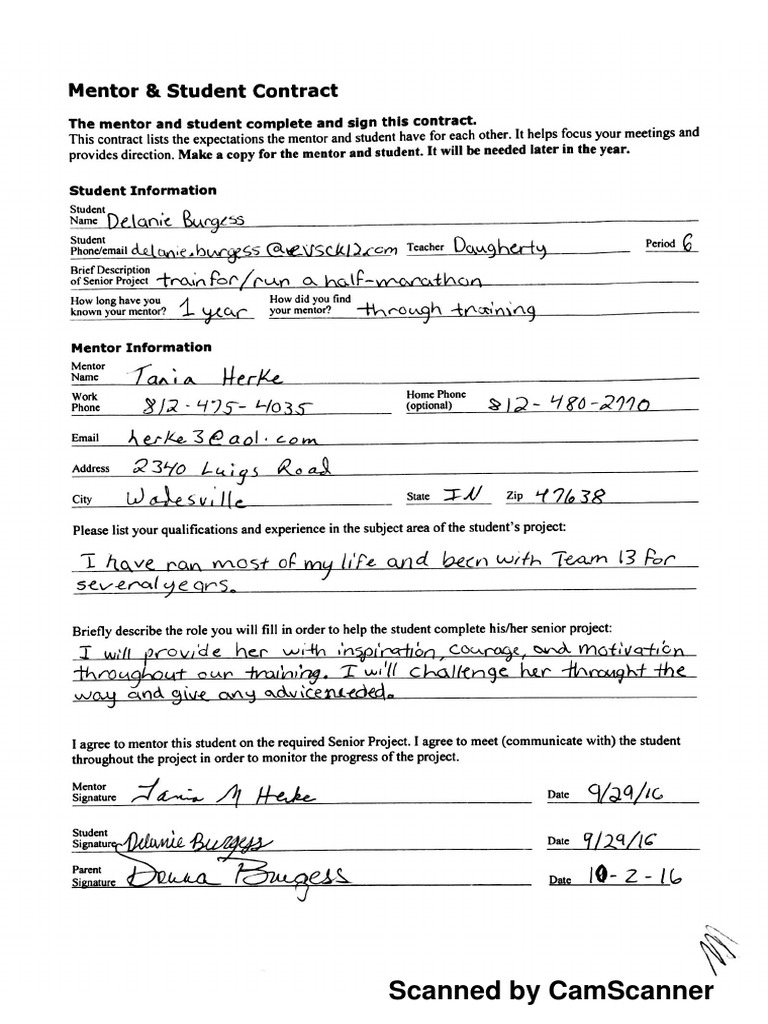 Mentor & Student Contract
The mentor and student complete and sign this contract.
This contract lists the expectations the mentor and student have for each other. It helps focus your meetings and
provides direction. Make a copy for the mentor and student. It will be needed later in the year.
Student Information
Student
Name Delanie Burgess
Student
Phone/email delanie.burgess@evsck12.com Teacher Daugherty Period 6
Brief Description
of Senior Project train for/run a half-marathon
How long have you known your mentor? 1 year How did you find your mentor? through training
Mentor Information
Mentor
Name Tania Herke
Work Phone 812-475-4035 Home Phone (optional) 812-480-2770
Email herke3@aol.com
Address 2340 Luigs Road
City Wadesville State IN Zip 47638
Please list your qualifications and experience in the subject area of the student's project:
I have ran most of my life and been with Team 13 for
several years.
Briefly describe the role you will fill in order to help the student complete his/her senior project:
I will provide her with inspiration, courage, and motivation
throughout our training. I will challenge her throught the
way and give any advice needed.
I agree to mentor this student on the required Senior Project. I agree to meet (communicate with) the student
throughout the project in order to monitor the progress of the project.
Mentor
Signature Tania M Herke Date 9/29/16
Student
Signature Delanie Burgess Date 9/29/16
Parent
Signature Donna Burgess Date 10-2-16
Scanned by CamScanner